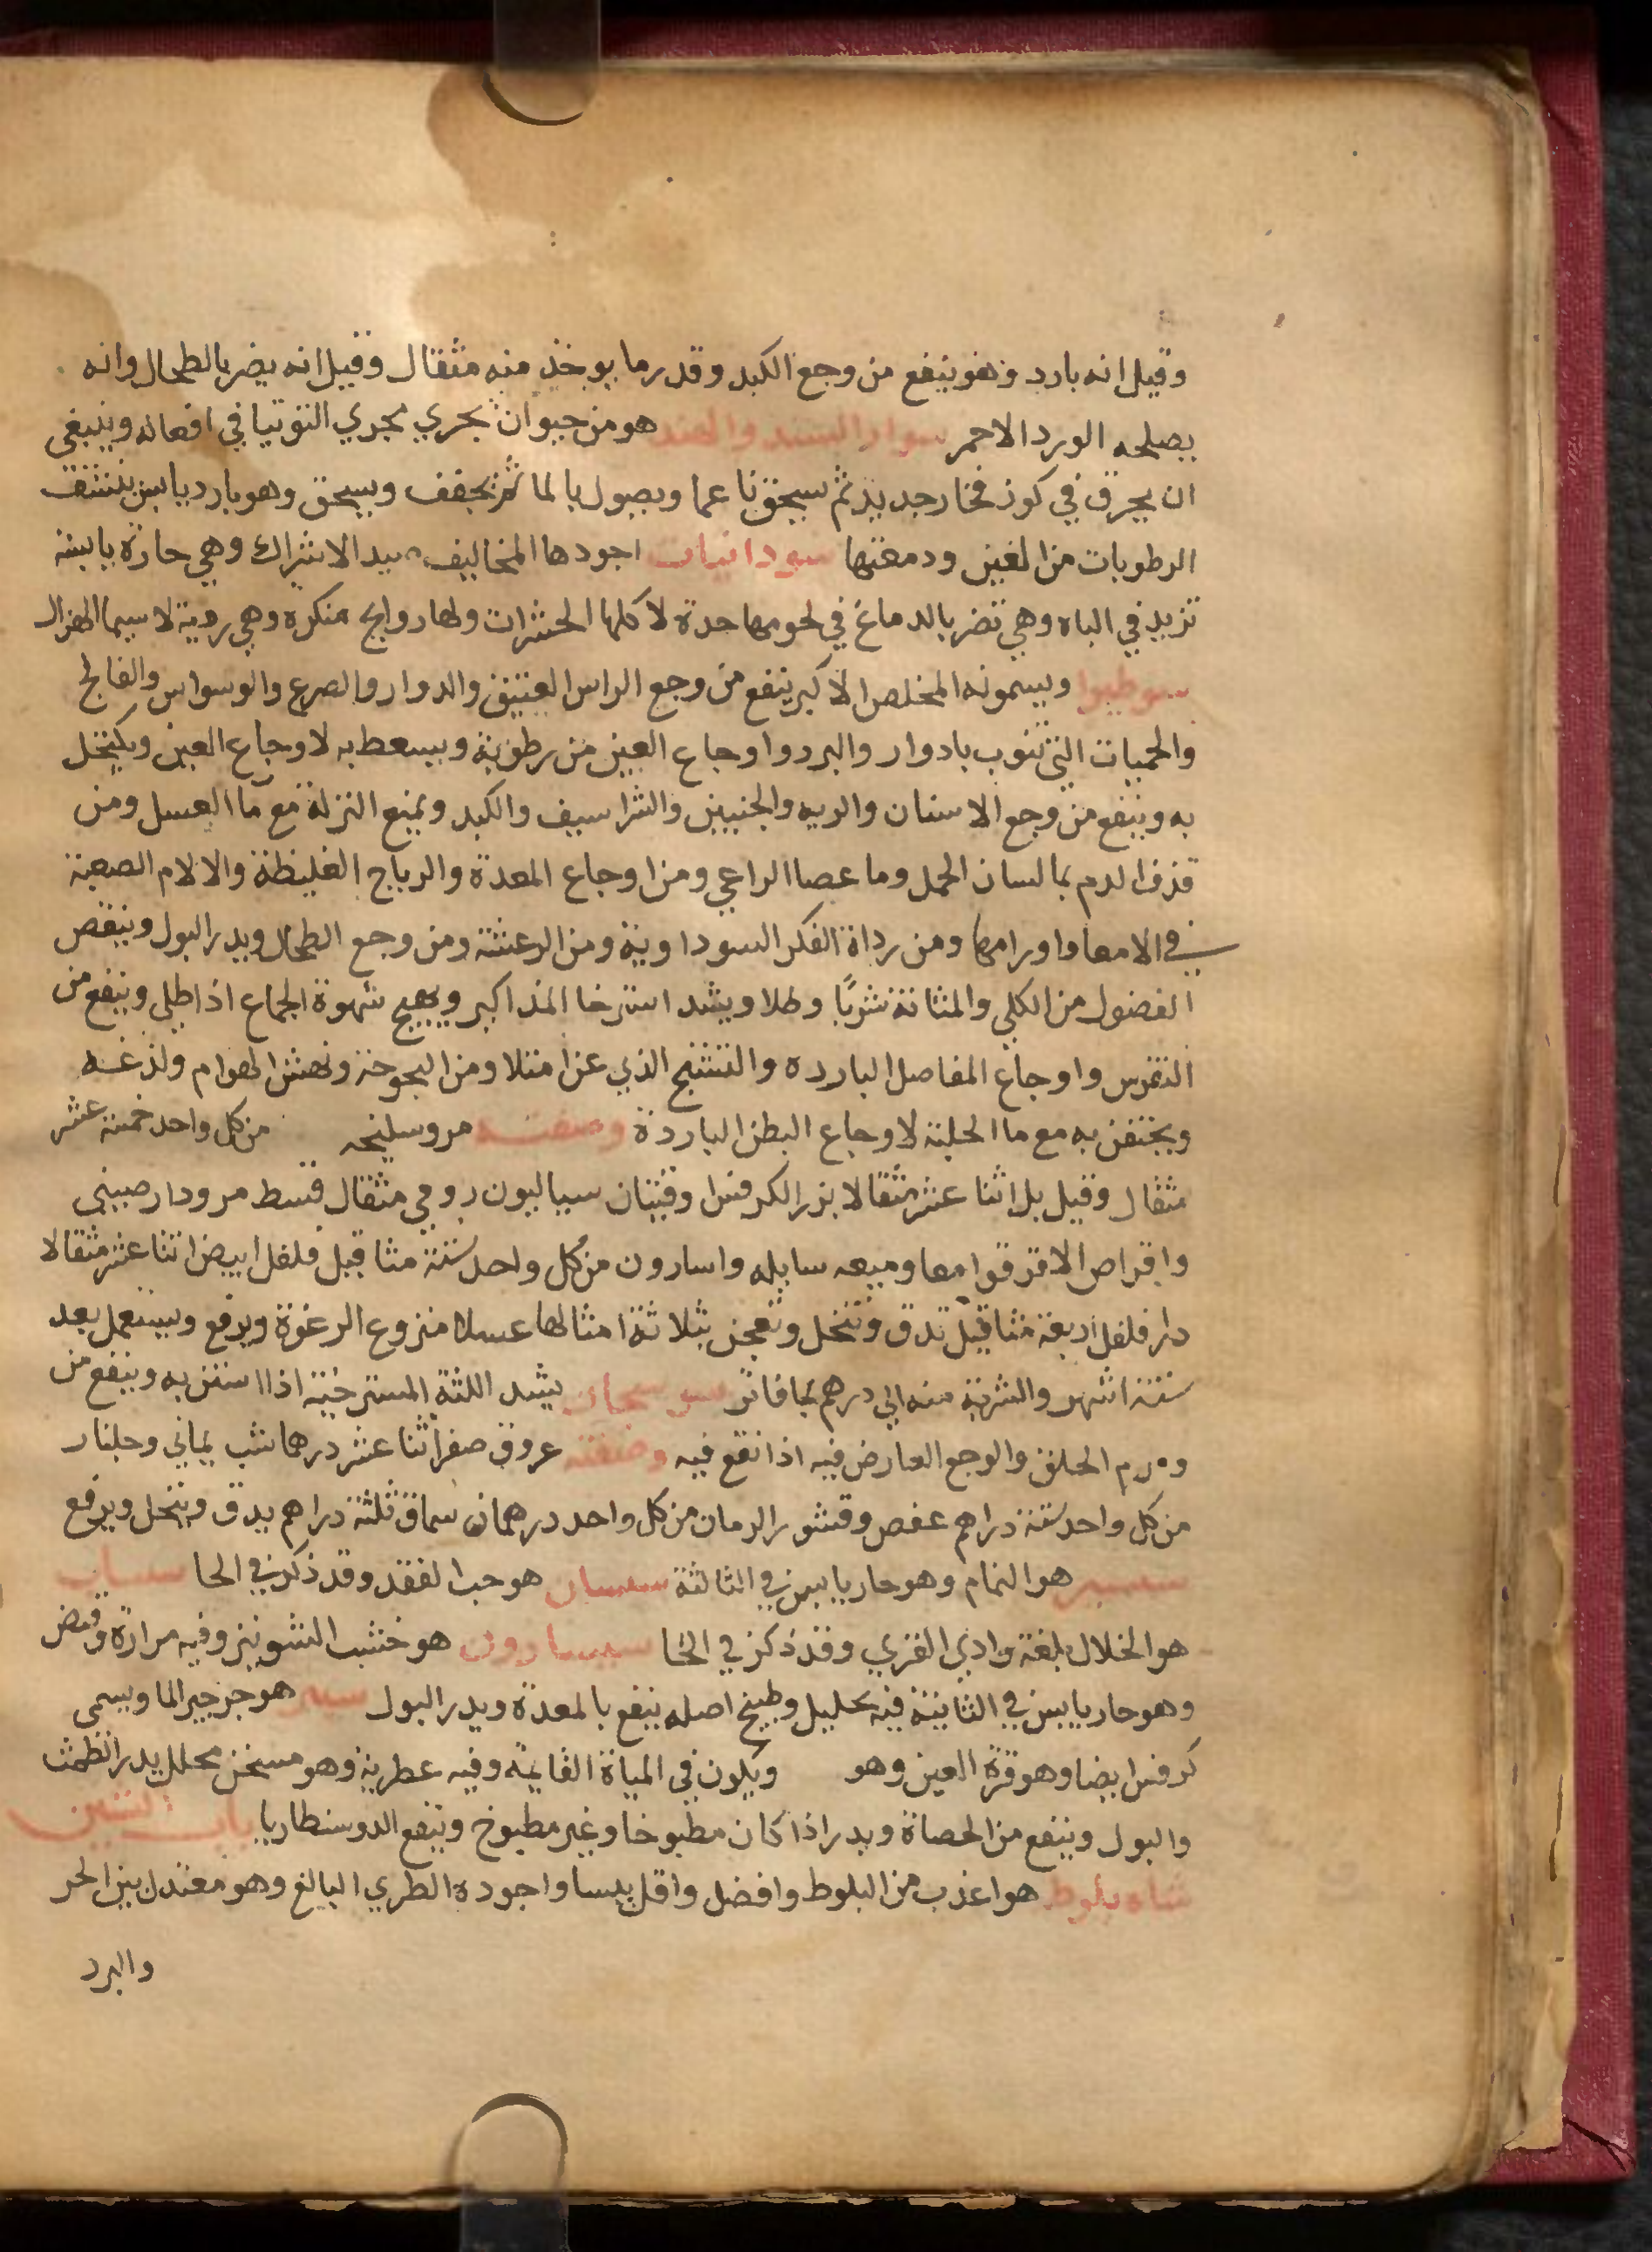 وقيل انه بارد وهو ينفع من وجع الكبد وقدر ما يوخذ منه مثقال وقيل انه يضر بالطحال وانه
يصلحه الورد الاحمر سوار السند والهند هو من حيوان يجري مجري التوتيا في افعاله وينبغي
ان يحرق في كوز فخار جديد ثم يسحق ناعما ويصول بالما ثم يجفف ويسحق وهو بارد يابس ينشف
الرطوبات من العين ودمعتها سودانيات اجودها المخاليف بيد الاشراك وهي حارة يابسة
تزيد في الباه وهي تضر بالدماغ في لحومها حدة لاكلها الحشرات ولها روايح منكره وهي رديه لا سيما الهزال
سوطيوا ويسمونه المخلص الاكبر ينفع من وجع الراس العتيق والدوار والصرع والوسواس والفالج
والحميات التي تنوب بادوار والبرد واوجاع العين من رطوبة ويسعط به لاوجاع العين ويكتحل
به وينفع من وجع الاسنان والريه والجنبين والشراسيف والكبد ويمنع النزلة مع ما العسل ومن
قذف الدم بما لسان الحمل وما عصا الراعي ومن اوجاع المعدة والرياح الغليظة والالام الصعبة
في الامعا واورامها ومن رداة الفكر السوداوية ومن الرعشة ومن وجع الطحال ويدر البول وينقص
الفضول من الكلي والمثانة شربا وطلا ويشد استرخا المذاكير ويهيج شهوة الجماع اذا طلي وينفع من
النقرس واوجاع المفاصل البارده والتشنج الذي عن امتلا ومن البحوحة ونهش الهوام ولذغه
ويحتقن به مع ما الحلبة لاوجاع البطن الباردة وصفته مر وسليخه من كل واحد خمسة عشر
مثقال وقيل بل اثنا عشر مثقالا بزر الكرفس اوقيتان سيساليون رومي مثقال قسط مر ودارصيني
واقراص الاقرقوا معا وميعه سايله واسارون من كل واحد ستة مثاقيل فلفل ابيض اثنا عشر مثقالا
دار فلفل اربعة مثاقيل تدق وتنخل وتعجن بثلاثة امثالها عسلا منزوع الرغوة ويرفع ويستعمل بعد
ستة اشهر والشربة منه الي درهم بما فاتر يشد اللثة المسترخية اذا استن به وينفع من
ورم الحلق والوجع العارض فيه اذا نقع فيه وصفته عروق صفر اثنا عشر درهما شب يماني وجلنار
من كل واحد ستة دراهم عفص وقشور الرمان من كل واحد درهمان سماق ثلثة دراهم يدق وينخل ويرفع
سيسنبر هو النمام وهو حار يابس في الثالثة سيسبان هو حب الفقد وقد ذكر في الحا
هو الخلال بلغة وادي القري وقد ذكر في الخا سيسارون هو خشب الشونيز وفيه مرارة وقبض
وهو حار يابس في الثانية فيه تحليل وطبيخ اصله ينفع بالمعدة ويدر البول هو جرجير الما ويسمي
كرفس ايضا وهو قرة العين وهو ويكون في المياة القايمة وفيه عطرية وهو مسخن محلل يدر الطمث
والبول وينفع من الحصاة ويدر اذا كان مطبوخا وغير مطبوخ وينفع الدوسنطاريا باب الشين
شاه بلوط هو اعذب من البلوط وافضل واقل يبسا واجوده الطري البالغ وهو معتدل بين الحر
والبرد